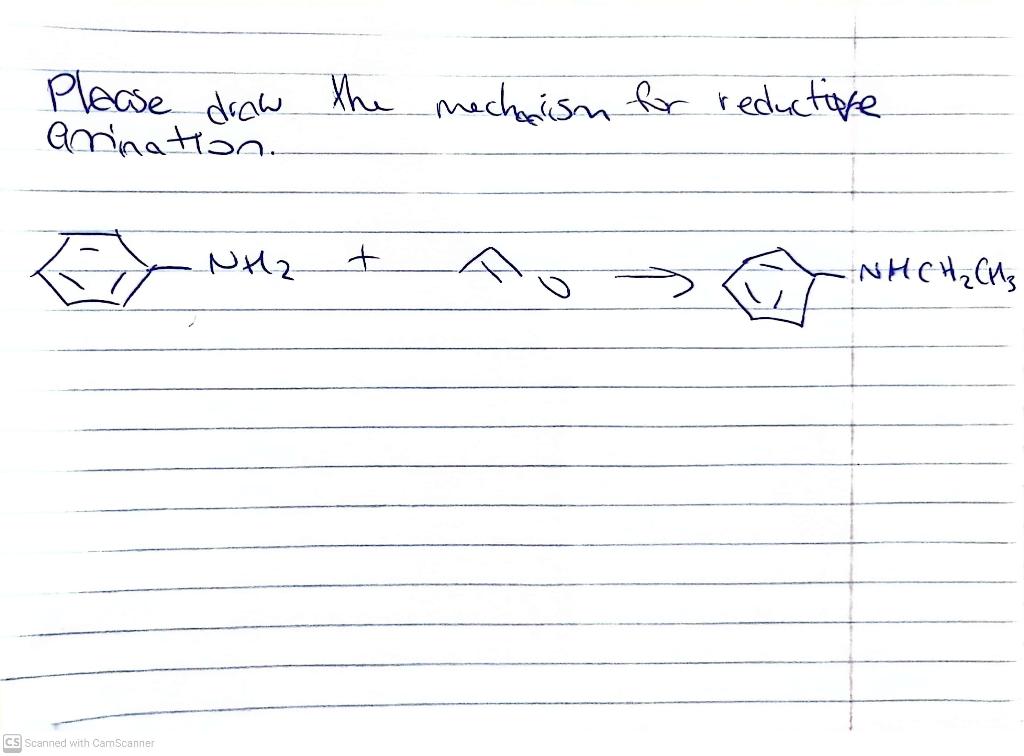 Please draw the mechanism for reductive
amination.
NH2 + O → NHCH2CH3
CS Scanned with CamScanner